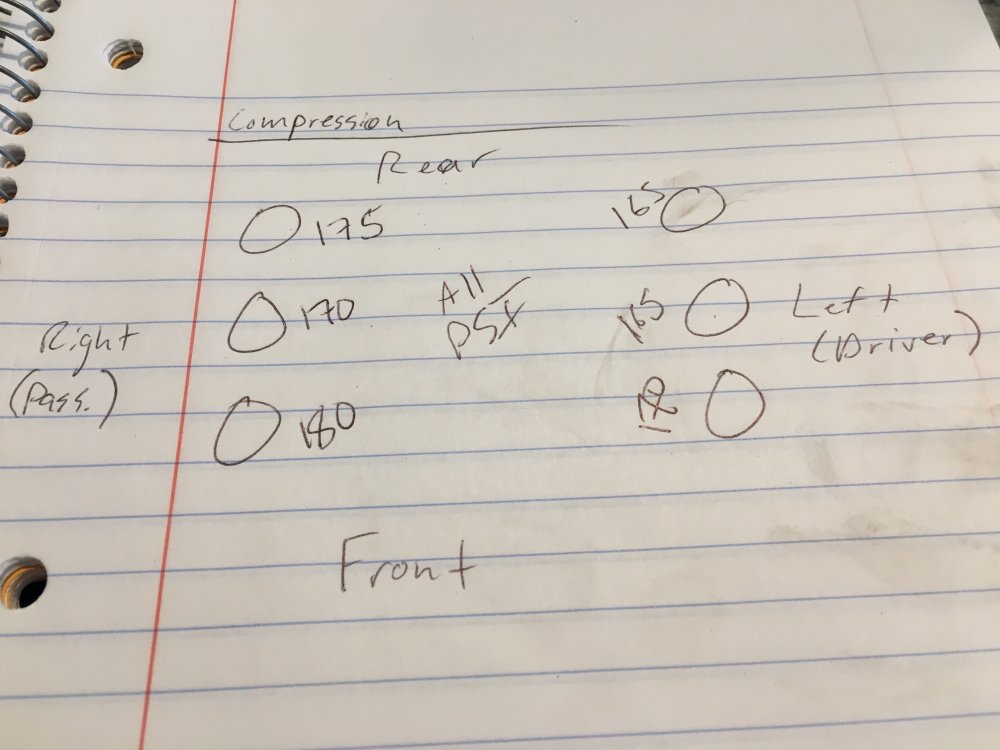 Compression
Rear
175 165
170 All PSI 165 Left
Right (Driver)
(Pass.) 180 170
Front